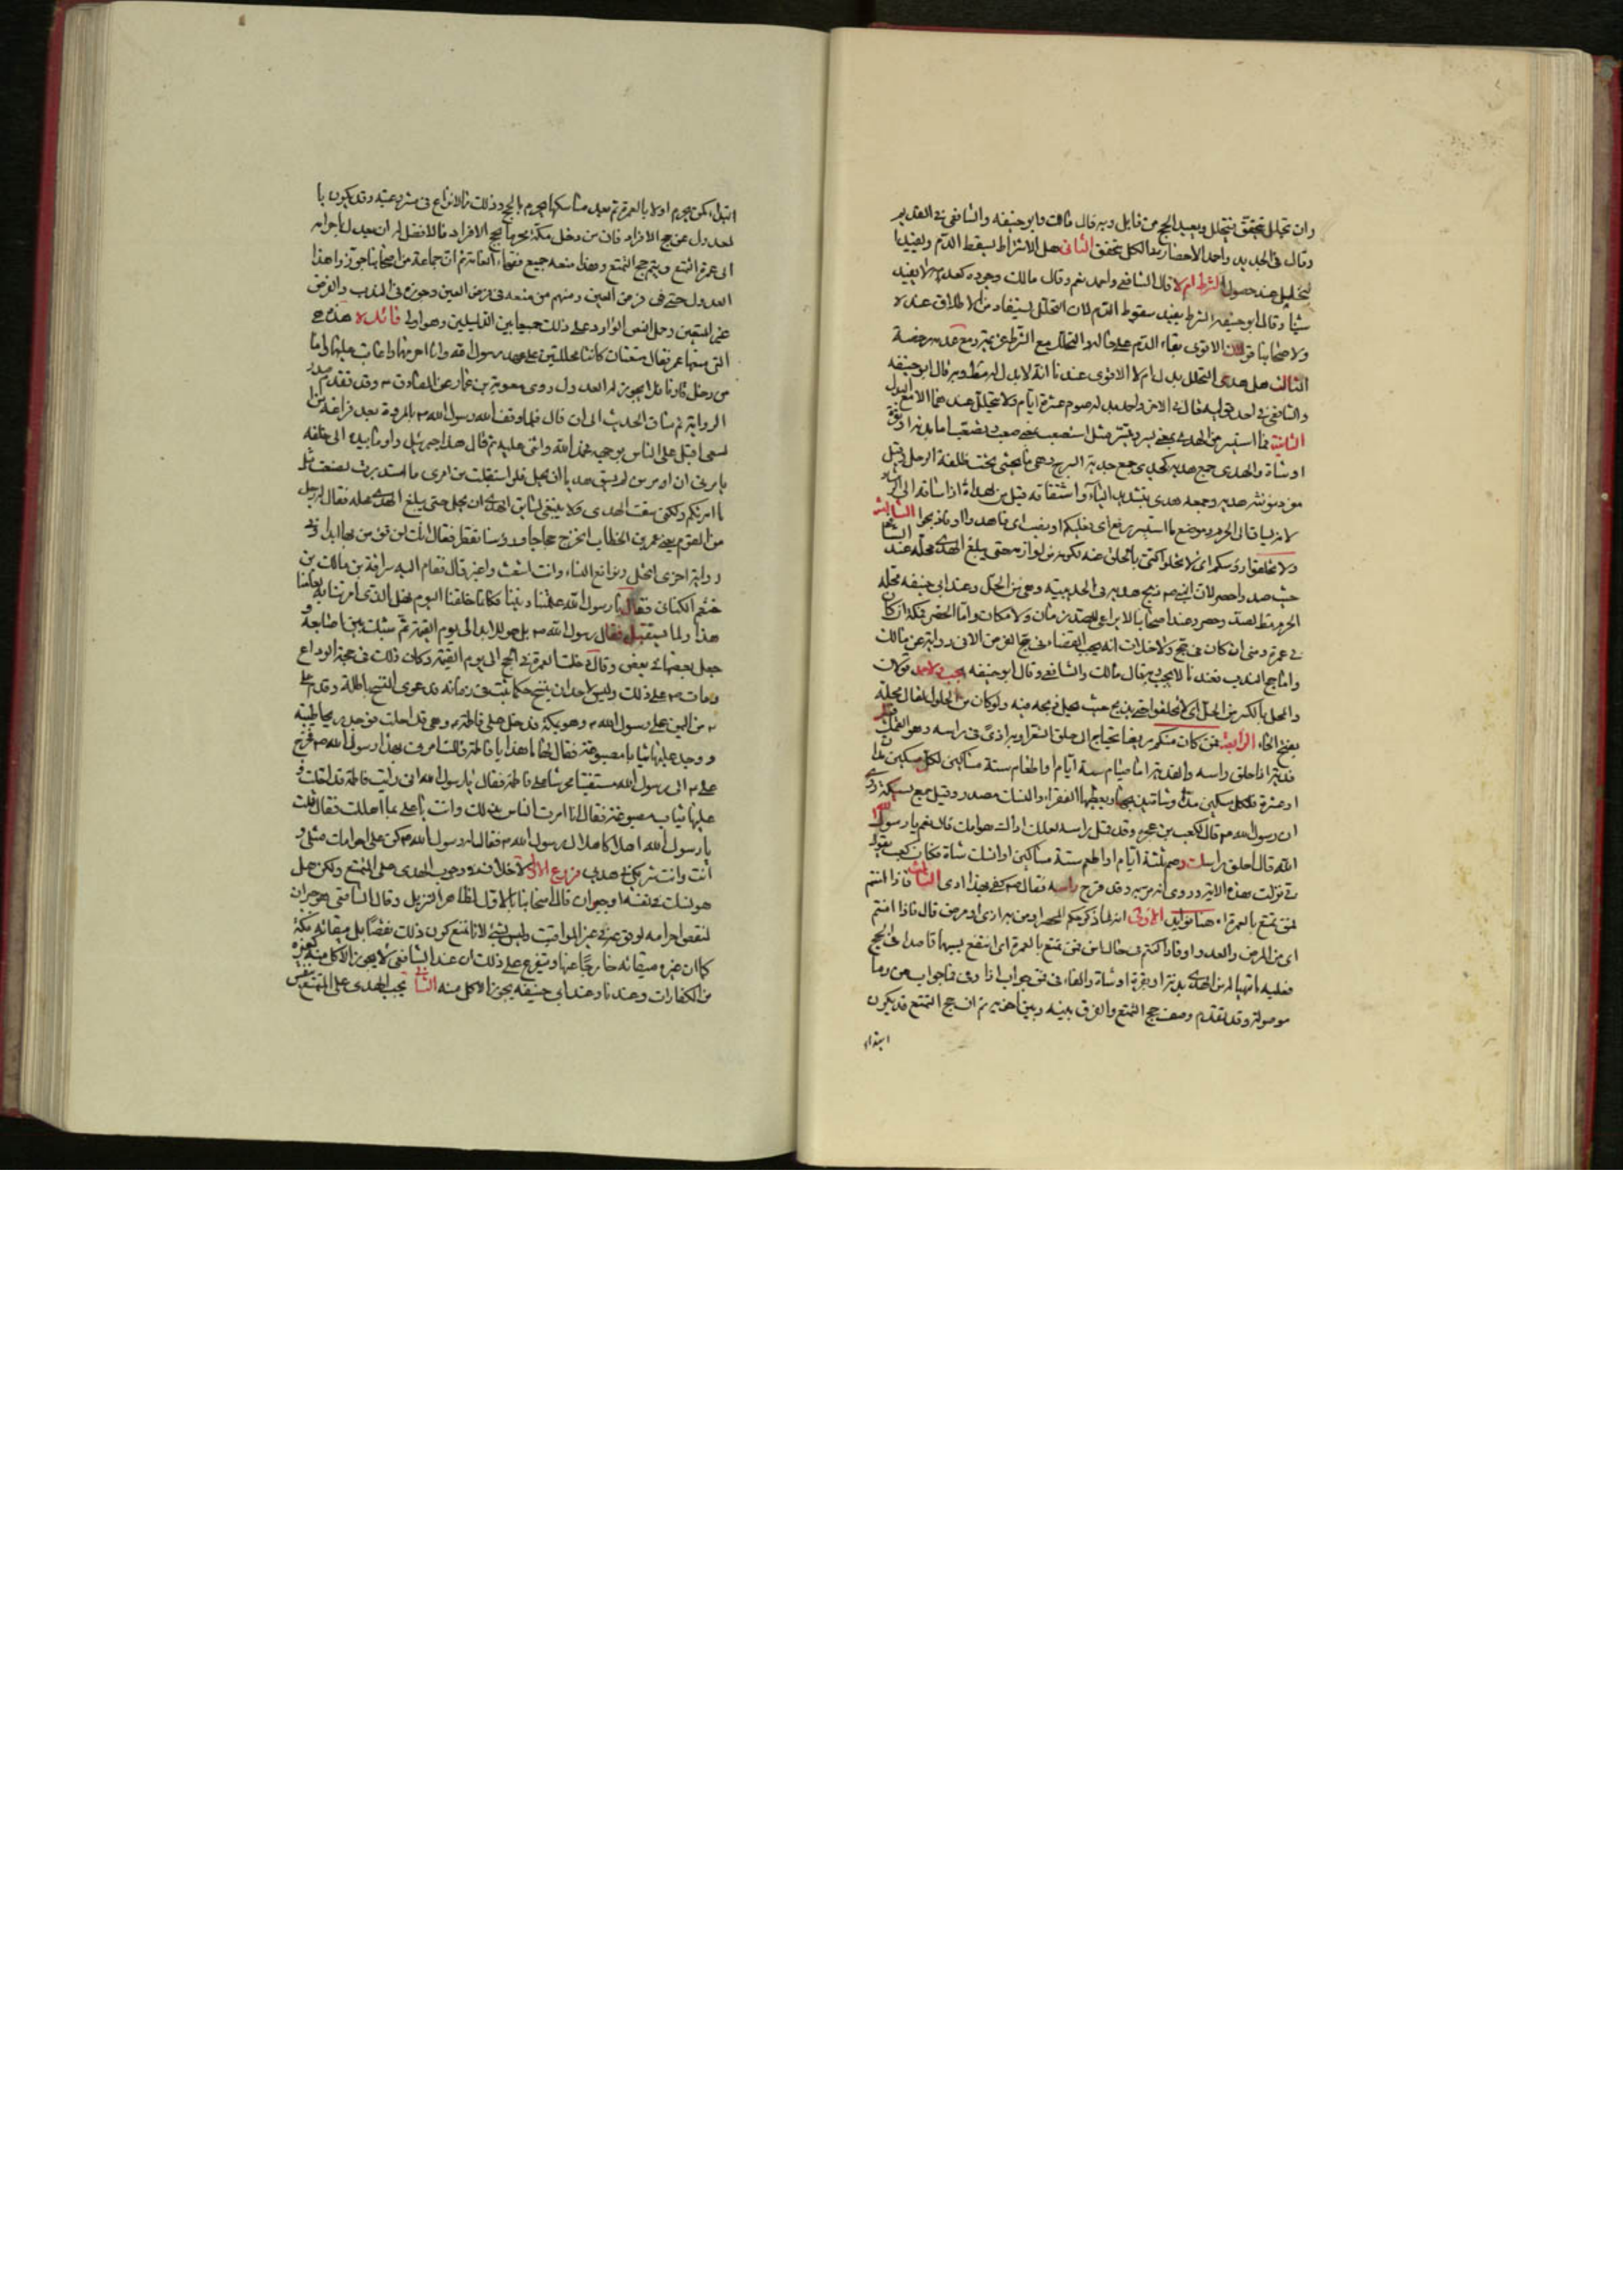 وان تحلل تحقق يتحلل ويعيد الحج من قابل وبه قال مالك وابو حنيفه والشافعي في القديم
وقال في الجديد واحد الاحصار بعد الكل تحقق الثاني هل الاشتراط يسقط الدم ويفيد
التحليل عند حصول الشرط ام لا قال الشافعي واحمد نعم وقال مالك وجوده كعدمه لا يفيد
شيئا وقال ابو حنيفه الشرط يفيد سقوط الدم لان التحلل يستفاد من الاطلاق عنده
ولاصحابنا قولان الاقوى بقاء الدم على حاله والتحلل مع الشرط عزيمة ومع عدمه رخصة
الثالث هل هدي التحلل بدل ام لا الاقوى عندنا انه لا بدل له وبه قال ابو حنيفه
والشافعي في احد قوليه وقال في الاخر واحمد بدله صوم عشرة ايام ولا يتحلل عندهما الا مع البدل
الثانية فما استيسر من الهدي يعني يسر وتيسر مثل استصعب يعني صعب وتصعب اما بدنة او بقرة
او شاة والهدي جمع هدية كجدي جمع جدية السرج وهي ما يحشى تحت ظلفة الرحل وقيل
مفرد مؤنثه هدية وجمعه هدي بتشديد الياء واشتقاقه قيل من الهداة اذا ساقه الى
لانه يساق الى الحرم وموضع ما استيسر رفع اي فعليكم او نصب اي فاهدوا او فاذبحوا الثالثة
ولا تحلقوا رؤسكم اي لا تحلوا كنى بالحلق عنه لكونه من لوازمه حتى يبلغ الهدي محله عند
حيث صد واحصر لان النبي ص ذبح هديه في الحديبية وهي من الحل وعند ابي حنيفه محله
الحرم فقط لصد وحصر وعند اصحابنا لا يراعى للصد زمان ولا مكان واما الحصر فمكة ان كان
في عمرة ومنى ان كان في حج ولا خلاف انه يجب القضاء في حج الفرض الا في رواية عن مالك
واما حج الندب فعندنا لا يجب وبه قال مالك والشافعي وقال ابو حنيفه يجب
والمحل بالكسر من الحل اي لا تحلقوا حتى يذبح حيث يحل ذبحه فيه ولو كان من الحلول لقال محله
بفتح الحاء الرابعة فمن كان منكم مريضا يحتاج الى حلق الشعر او به اذى في راسه وهو القمل
فدية اذا حلق راسه والفدية اما صيام ستة ايام او اطعام ستة مساكين لكل مسكين
او عشرة لكل مسكين مد او شاة يذبحها ويعطيها الفقراء والنسك مصدر وقيل جمع نسيكة روي
ان رسول الله ص قال لكعب بن عجره وقد قمل راسه لعلك اذاك هوامك قال نعم يا رسول الله
قال احلق راسك وصم ثلثة ايام او اطعم ستة مساكين او انسك شاة فكان كعب يقول
في نزلت هذه الاية وروي انه مر به وقد قرح راسه فقال ص كفى بهذا اذى فاذا امنتم
فمن تمتع بالعمرة هنا فوائد الاولى انه لما ذكر حكم المحصر او من به اذى او مرض قال فاذا امنتم
اي من المرض والعدو او فاذا كنتم في حال امن فمن تمتع بالعمرة اي انتفع بسببها قاصدا الى الحج
فعليه ما تهيا له من الهدي بدنة او بقرة او شاة والفاء في فمن جواب اذا وفي فما جواب من وما
موصولة وقد تقدم وصف حج التمتع والفرق بينه وبين اخويه ثم ان حج التمتع قد يكون
ابتداء
ابتداء كمن يحرم اولا بالعمرة ثم بعد مناسكها يحرم بالحج وذلك لا نزاع في مشروعيته وقد يكون با
لعدول عن حج الافراد فان من دخل مكة محرما بحج الافراد فالافضل له ان يعدل باحرامه
الى عمرة التمتع ويتم حج التمتع وهذا منعه جميع فقهاء العامة ثم ان جماعة من اصحابنا جوزوا هذا
العدول حتى في فرض العين ومنهم من منعه في فرض العين وجوزه في الندب والفرض
غير المتعين وحمل النص الوارد على ذلك جمعا بين الدليلين وهو اولى فائدة هذه هي
التي منعها عمر فقال متعتان كانتا محللتين على عهد رسول الله وانا احرمهما واعاقب عليهما واما
من دخل قارنا فلا يجوز له العدول روى معوية بن عمار عن الصادق ع وقد تقدم صدر
الرواية ثم ساق الحديث الى ان قال فلما وقف رسول الله ص بالمروة بعد فراغه من
السعي اقبل على الناس بوجهه فحمد الله واثنى عليه ثم قال هذا جبرئيل واوما بيده الى خلفه
يامرني ان امر من لم يسق هديا ان يحل فلو استقبلت من امري ما استدبرت لصنعت مثل
ما امرتكم ولكني سقت الهدي ولا ينبغي لسايق الهدي ان يحل حتى يبلغ الهدي محله فقال رجل
من القوم يعني عمر بن الخطاب انخرج حجاجا ورؤسنا تقطر فقال انك لن تؤمن بها ابدا وفي
رواية اخرى انحل ونواقع النساء وانت اشعث واغبر قال فقام اليه سراقة بن مالك بن
خثعم الكناني فقال يا رسول الله علمتنا ديننا فكانا خلقنا اليوم فهل الذي امرتنا به لعامنا
هذا ولما يستقبل فقال رسول الله ص بل هو للابد الى يوم القيمة ثم شبك بين اصابعه و
جعل بعضها في بعض وقال دخلت العمرة في الحج الى يوم القيمة وكان ذلك في حجة الوداع
ومات ص على ذلك وليس لاحد ان ينسخ حكما ثبت في زمانه فدعوى النسخ باطلة وقدم علي
ع من اليمن على رسول الله ص وهو بمكة فدخل على فاطمة ع وهي قد احلت فوجد ريحا طيبة
ووجد عليها ثيابا مصبوغة فقال لها ما هذا يا فاطمة قالت امرنا بهذا رسول الله ص فخرج
علي ع الى رسول الله مستفتيا محرشا على فاطمة فقال يا رسول الله اني رايت فاطمة قد احلت و
عليها ثياب مصبوغة فقال انا امرت الناس بذلك وانت يا علي بما اهللت فقال قلت
يا رسول الله اهلالا كاهلال رسول الله ص فقال له رسول الله ص كن على احرامك مثلي و
انت شريكي في هديي فروع الاول لا خلاف في وجوب الهدي على المتمتع ولكن هل
هو نسك في نفسه او جبران قال اصحابنا بالاول لظاهر التنزيل وقال الشافعي هو جبران
لنقص احرامه لوقوعه في غير المواقيت وليس بشيء لانا نمنع كون ذلك نقصا بل ميقاته مكة
كما ان غيره ميقاته خارجا عنها ويتفرع على ذلك ان عند الشافعي لا يجوز الاكل منه كغيره
من الكفارات وعندنا وعند ابي حنيفه يجوز الاكل منه الثاني يجب الهدي على المتمتع بنفس